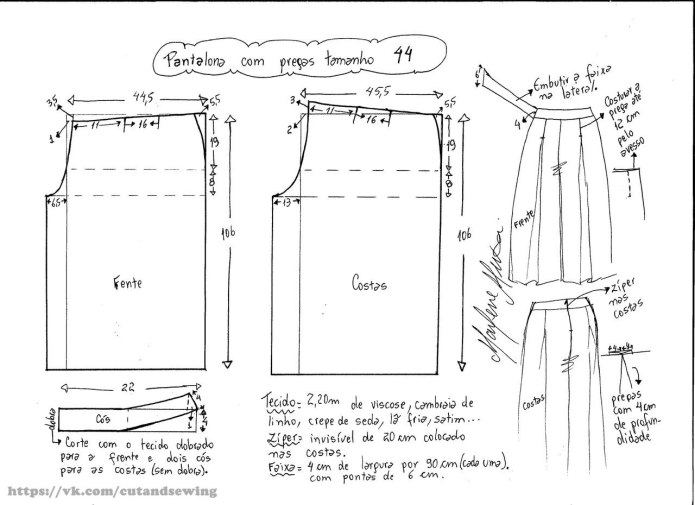 Pantalona com pregas tamanho 44
44,5
3,5
5,5
1
11
16
19
8
6,5
106
Frente
45,5
3
5,5
2
11
16
19
8
13
106
Costas
6
Embutir a faixa
na lateral.
4
Costurar a
prega até
12 cm
pelo
avesso
Frente
Marlene Mukai
zíper
nas
costas
Costas
4 4
pregas
com 4cm
de profun-
didade
22
dobra
Cós
4
1
4
Corte com o tecido dobrado
para a frente e dois cós
para as costas (sem dobra).
Tecido= 2,20m de viscose, cambraia de
linho, crepe de seda, lã fria, satim...
Zíper= invisível de 20 cm colocado
nas costas.
Faixa= 4 cm de largura por 90 cm (cada uma).
com pontas de 6 cm.
https://vk.com/cutandsewing